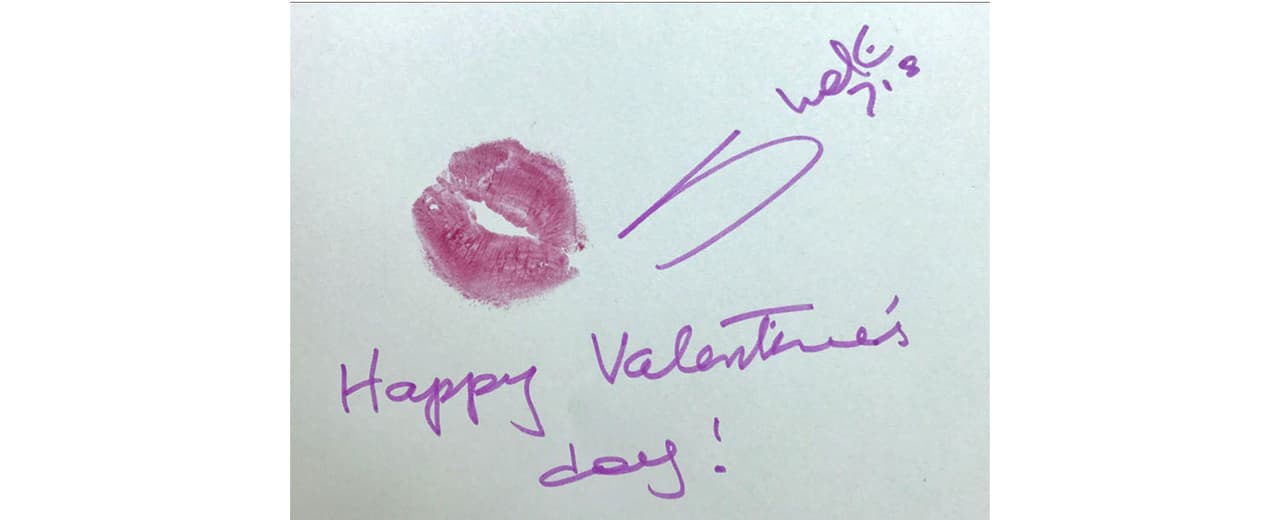 Happy Valentine's
day!